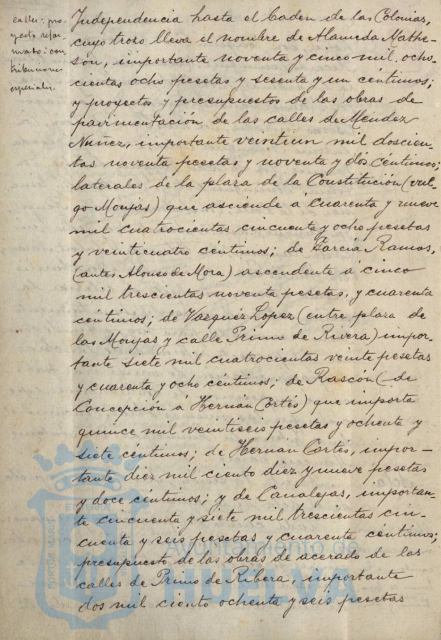 calles; pro-
yecto refor-
mato: con-
tribuciones
especiales.
Independencia hasta el baden de las Colonias,
cuyo trozo lleva el nombre de Alameda Mathe-
son, importante noventa y cinco mil, ocho-
cientas ocho pesetas y sesenta y un céntimos;
y proyectos y presupuestos de las obras de
pavimentación de las calles de Mendez
Nuñez, importante veintiun mil doscien-
tas noventa pesetas y noventa y dos céntimos;
laterales de la plaza de la Constitución (vul-
go Monjas) que asciende á cuarenta y nueve
mil cuatrocientas cincuenta y ocho pesetas
y veinticuatro céntimos; de García Ramos,
(antes Alonso de Mora) ascendente á cinco
mil trescientas noventa pesetas, y cuarenta
centimos; de Vazquez Lopez (entre plaza de
las Monjas y calle Primo de Rivera) impor-
tante siete mil cuatrocientas veinte pesetas
y cuarenta y ocho céntimos; de Rascón (de
Concepción á Hernán Cortés) que importa
quince mil veintiseis pesetas y ochenta y
siete céntimos; de Hernan Cortés, impor-
tante diez mil ciento diez y nueve pesetas
y doce centimos; y de Canalejas, importan-
te cincuenta y siete mil trescientas cin-
cuenta y seis pesetas y cuarenta céntimos;
presupuesto de las obras de acerado de las
calles de Primo de Ribera, importante
dos mil ciento ochenta y seis pesetas
HUELVA